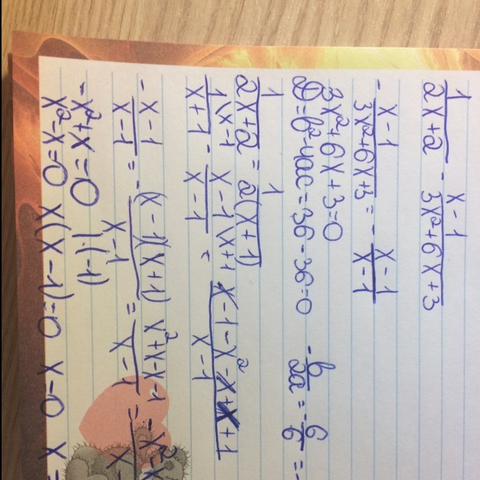 1/2x+2 - x-1/3x²+6x+3
-x-1/3x²+6x+3 = - x-1/x-1
3x²+6x+3=0
D=b²-4ac=36-36=0 -b/2a = -6/6 =-
1/2x+2 = 1/2(x+1)
1\x-1/x+1 - x-1\x+1/x-1 = x-1-x²-x+x+1/x-1
-x-1/x-1 = - (x-1)(x+1)/x-1 = x²+x-x-1/x-1 =
-x²+x=0 |·(-1)
x²-x=0 x(x-1)=0 x-0 x